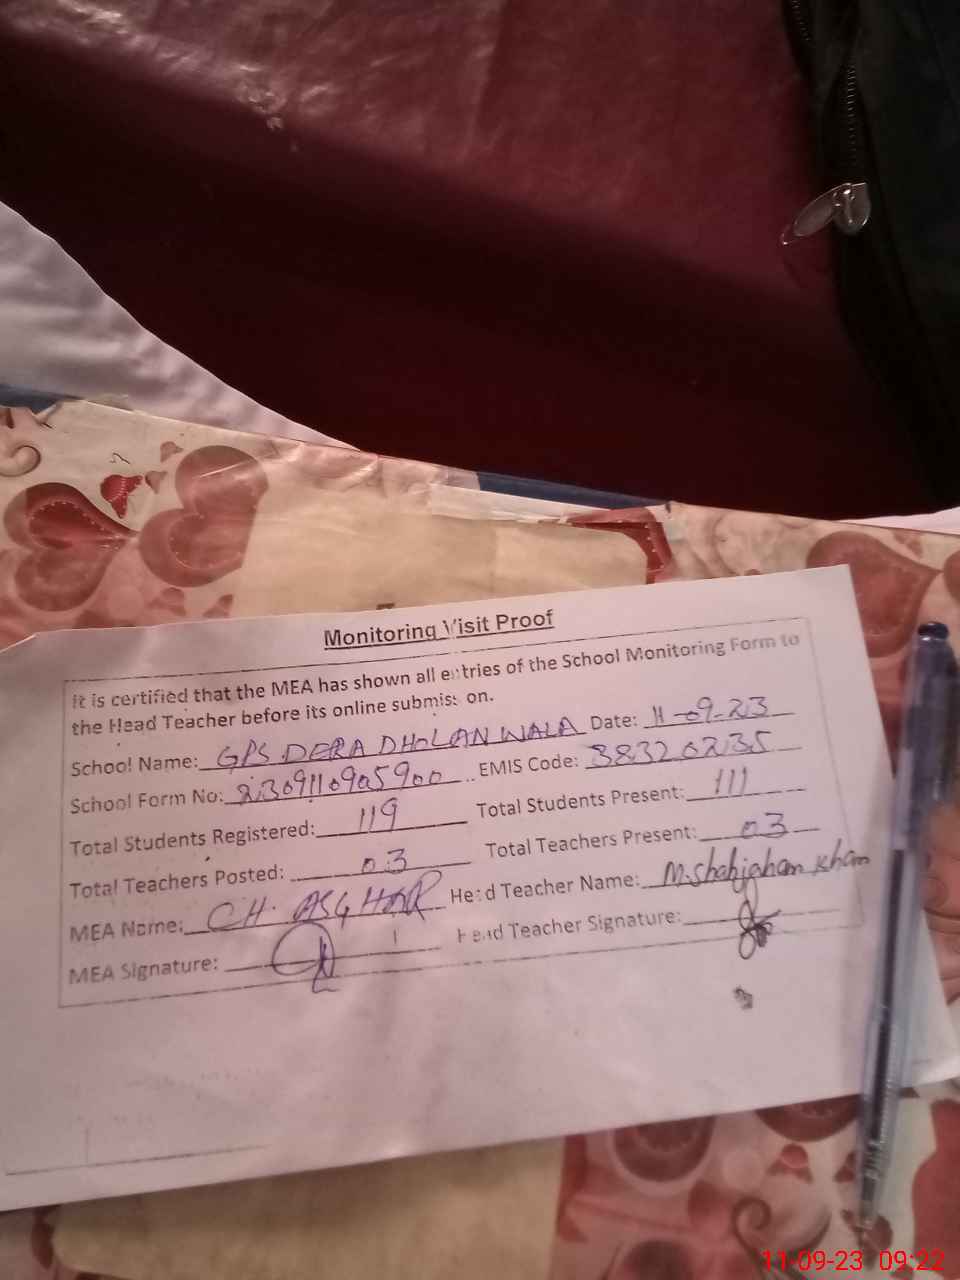 Monitoring Visit Proof
It is certified that the MEA has shown all entries of the School Monitoring Form to
the Head Teacher before its online submission.
School Name: GPS DERA DHOLAN WALA Date: 11-09-23
School Form No: 2309110905900 EMIS Code: 38320235
Total Students Registered: 119 Total Students Present: 111
Total Teachers Posted: 03 Total Teachers Present: 03
MEA Name: CH. ASGHAR Head Teacher Name: M. Shahjahan Khan
MEA Signature: Head Teacher Signature:
11-09-23 09:22